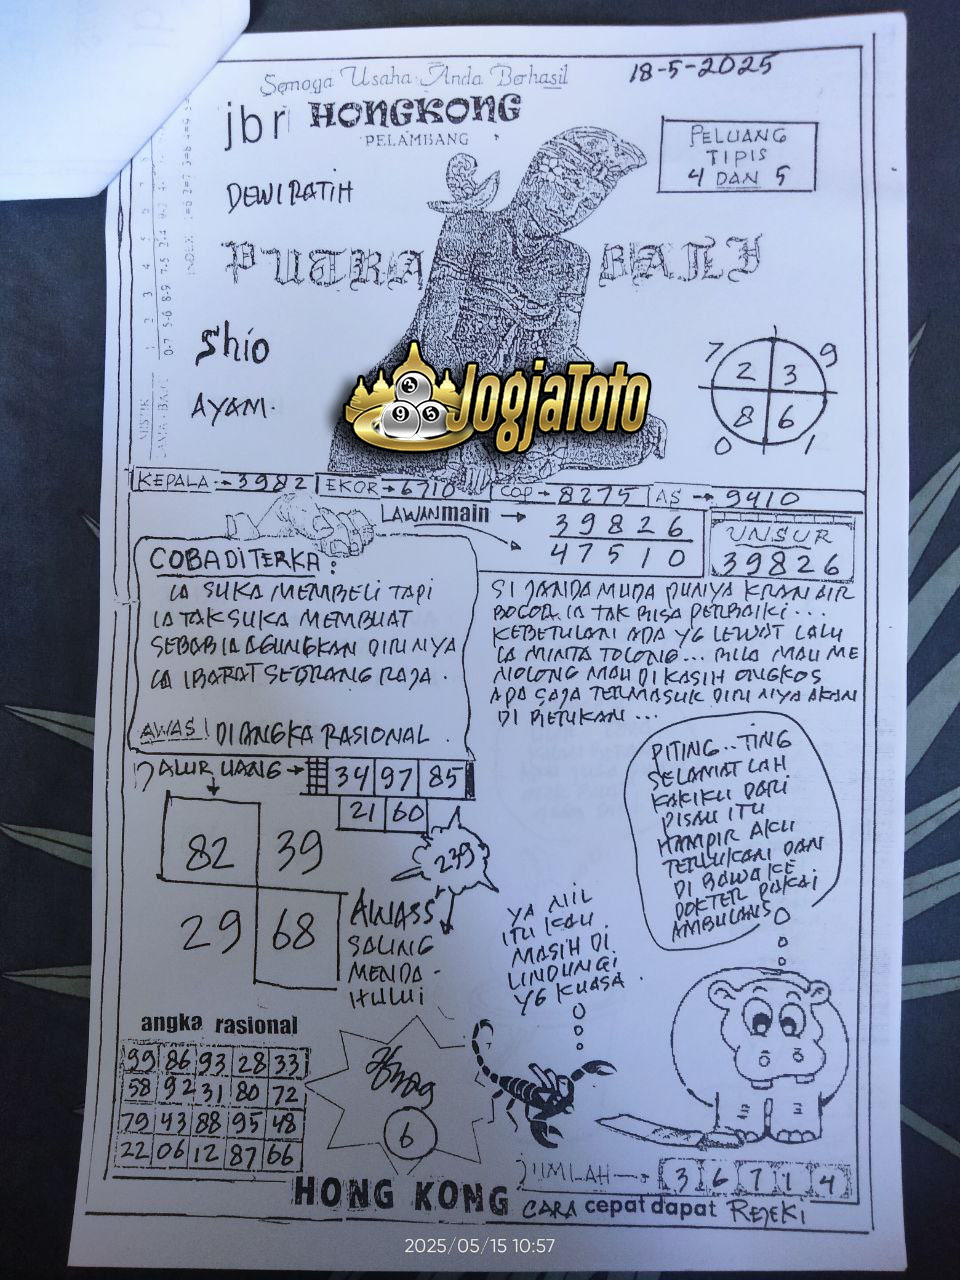 Semoga Usaha Anda Berhasil
18-5-2025
jbr HONGKONG
PELAMBANG
PELUANG
TIPIS
4 DAN 5
DEWI RATIH
PUTRA BALI
Shio
AYAM.
7 9
2 3
8 6
0 1
3
9 5
JogjaToto
KEPALA → 3982 EKOR → 6710 COP → 8275 AS → 9410
LAWAN main → 39826
47510
UNSUR
39826
COBA DITERKA :
IA SUKA MEMBELI TAPI
IA TAK SUKA MEMBUAT
SEBAB IA AGUNGKAN DIRINYA
IA IBARAT SEORANG RAJA .
AWAS ! DI ANGKA RASIONAL .
SI JANDA MUDA PUNYA KRAN AIR
BOCOR IA TAK BISA PERBAIKI ....
KEBETULAN ADA YG LEWAT LALU
IA MINTA TOLONG ... BILA MAU ME
NOLONG MAU DI KASIH ONGKOS
APA SAJA TERMASUK DIRI NYA AKAN
DI BERIKAN ...
JALUR UANG → 34 97 85
21 60
82 39
29 68
239
AWASS
SALING
MENDA -
HULUI
PITING .. TING
SELAMAT LAH
KAKIKU DARI
PISAU ITU
HAMPIR AKU
TERLUKAI DAN
DI BAWA KE
DOKTER PAKAI
AMBULANS
YA NIL
ITU KAU
MASIH DI
LINDUNGI
YG KUASA .
angka rasional
99 86 93 28 33
58 92 31 80 72
79 43 88 95 48
22 06 12 87 66
6
JUMLAH → 3 6 7 1 4
HONG KONG CARA cepat dapat REJEKI
2025/05/15 10:57